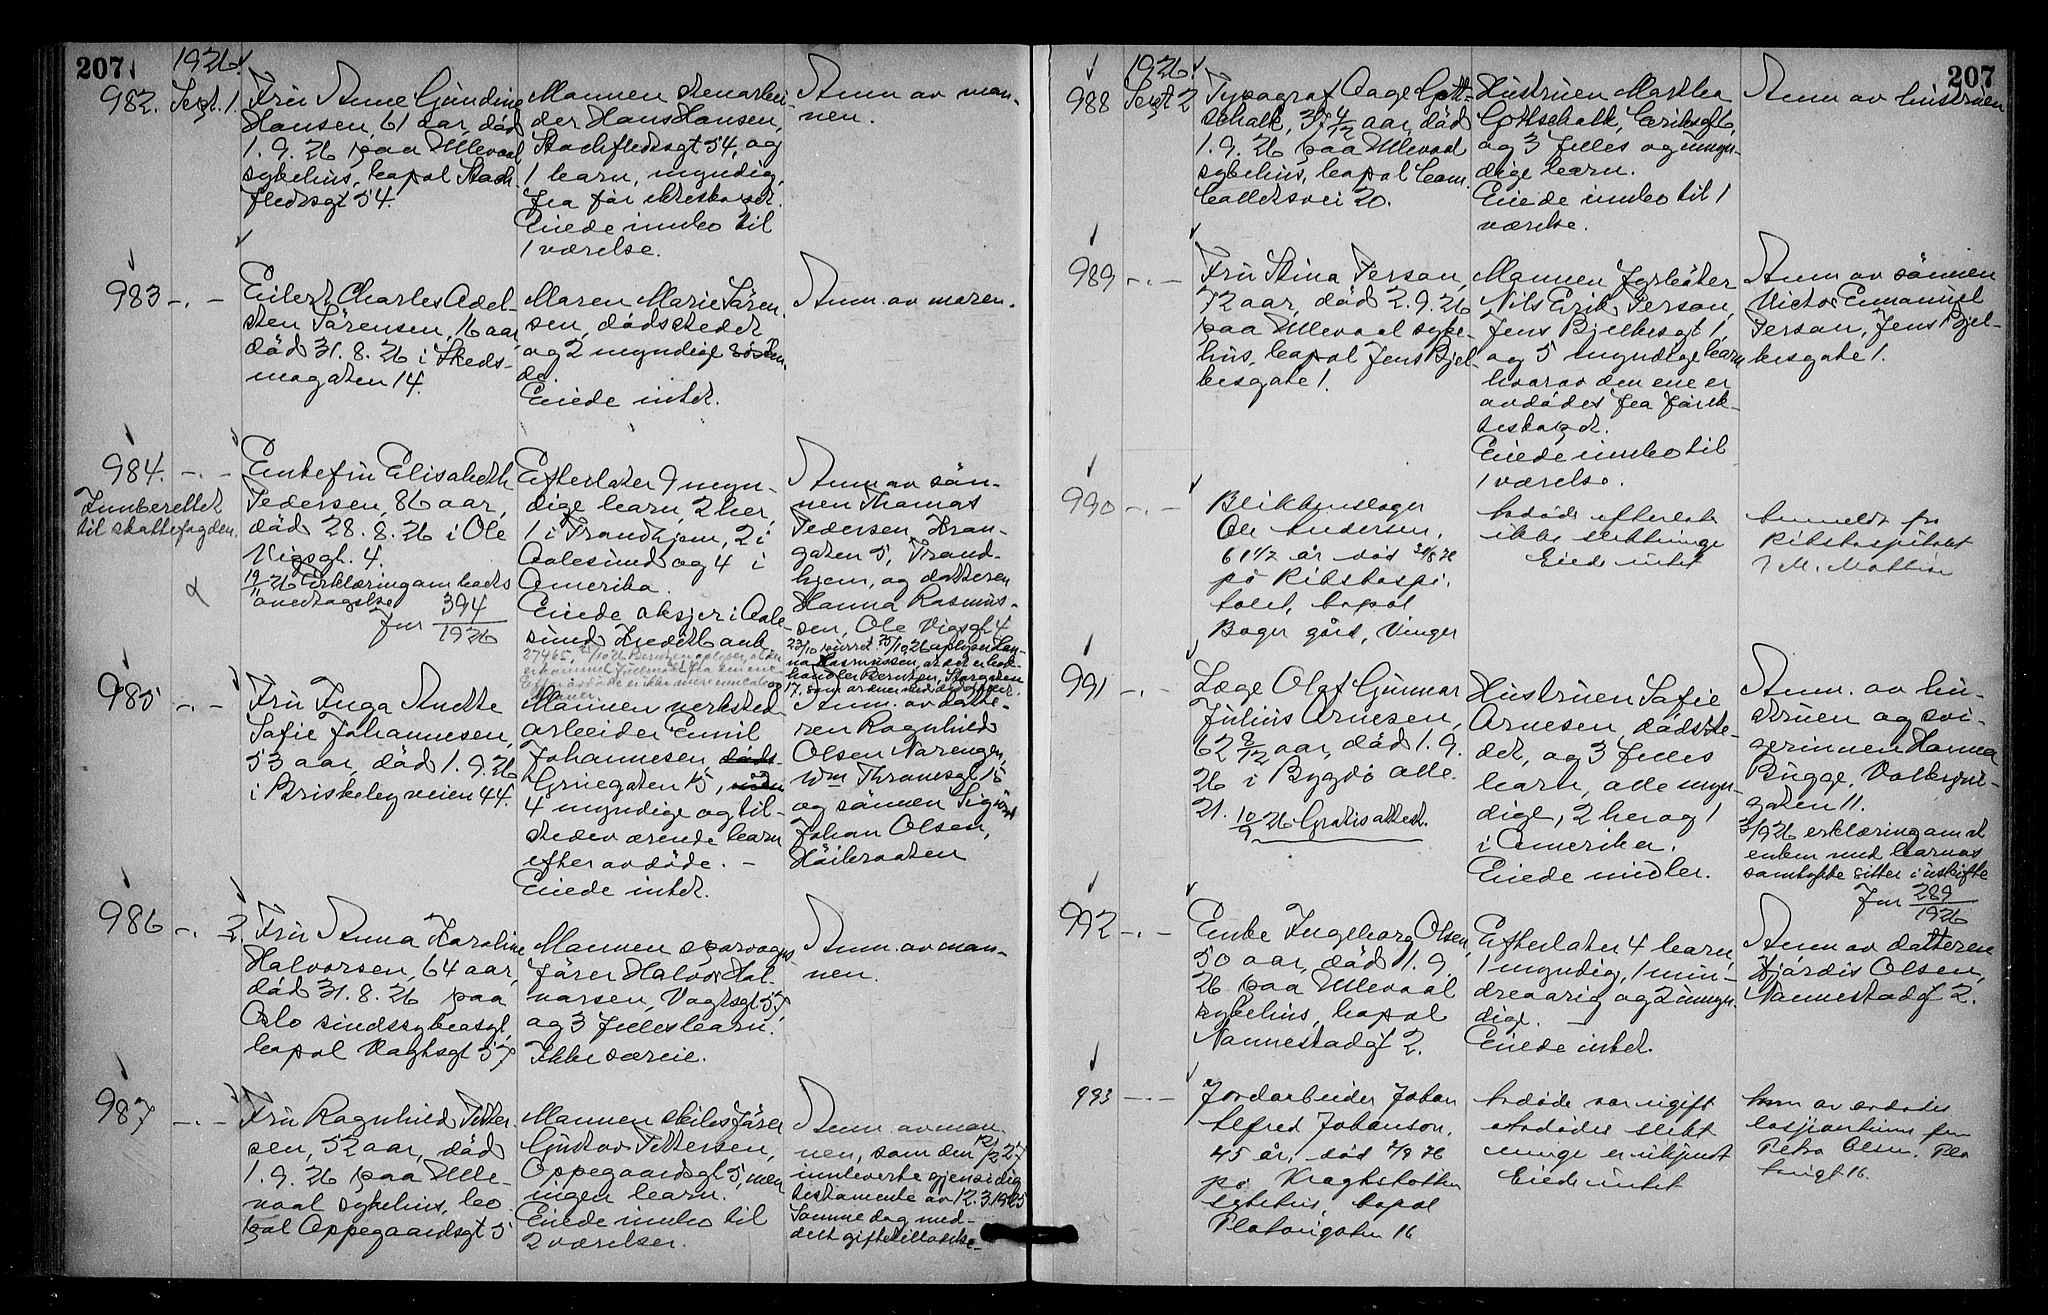 207
1926.
982. Sept. 1.
Fru Anne Gundine
Hansen, 61 aar, död
1. 9. 26 paa Ullevaal
sykehus, bopæl Stock-
fletsgt 54.
Mannen stenarbei-
der Hans Hansen,
Stockfletsgt 54, og
1 barn, myndig,
fra før ekteskapet.
Eiede innbo til
1 værelse.
Anm. av man-
nen.
983 -.-
Eilert Charles Adel-
sten Sörensen, 16 aar,
död 31. 8. 26 i Skeds-
mogaten 14.
Moren Marie Sören-
sen, dödsstedet
og 2 myndige søsken-
de.
Eiede intet.
Anm. av moren.
984. -.-
Innberettet
til skattefogden.
Enkefru Elisabeth
Pedersen, 86 aar,
död 28. 8. 26 i Ole
Vigsgt. 4.
19/11 26 Erklæring om boets
overtagelse
Jnr 394/1926
Efterlater 9 myn-
dige barn, 2 her,
1 i Trondhjem, 2 i
Aalesund og 4 i
Amerika.
Eiede aksjer i Aale-
sund Kreditbank
Anm. av søn-
nen Thomas
Pedersen, Kran-
gaten 5, Trond-
hjem, og datteren
Hanna Rasmus-
sen, Ole Vigsgt. 4
985 -.-
Fru Inga Anette
Sofie Johannesen,
53 aar, död 1. 9. 26
i Briskebyveien 44.
Mannen verksted-
arbeider Emil
Johannesen döds-
Griegaten 15,
4 myndige og til-
stedeværende barn
efter avdøde. -
Eiede intet.
Anm. av datte-
ren Ragnhild
Olsen Narengen,
Wm Thranesgt 15
og sönnen Sigurd
Johan Olsen,
Höibraaten
986 -.- 2.
Fru Anna Karoline
Halvorsen, 64 aar,
död 31. 8. 26 paa
Oslo sindssykeasyl,
bopæl Vogtsgt 57
Mannen sporvogns-
förer Halvor Hal-
vorsen, Vogtsgt 57,
og 3 felles barn.
Ikke særeie.
Anm. av man-
nen.
987 -.-
Fru Ragnhild Petter-
sen, 52 aar, död
1. 9. 26 paa Ulle-
vaal sykehus, bo-
pæl Oppegaardsgt 5
Mannen skibsförer
Gustav Pettersen,
Oppegaardsgt 5, men
ingen barn.
Eiede innbo til
2 værelser.
Anm. av man-
nen, som den 12/2 27
innleverte gjensidig
testamente av 12. 3. 1925
Samme dag med-
delt giftetillatelse.
207
1926.
988 Sept 2
Typograf Aage Gott-
schalk, 37 4/12 aar, död
1. 9. 26 paa Ullevaal
sykehus, bopæl Com.
Collettsvei 20.
Hustruen Martha
Gottschalk, Eriksgt 6,
og 3 felles og umyn-
dige barn.
Eiede innbo til 1
værelse.
Anm av hustruen
989 -.-
Fru Stina Person,
72 aar, död 2. 9. 26
paa Ullevaal syke-
hus, bopæl Jens Bjel-
kesgate 1.
Mannen fyrböter
Nils Erik Person,
Jens Bjelkesgt 1,
og 5 myndige barn
hvorav den ene er
avdödes fra förek-
teskapet.
Eiede innbo til
1 værelse.
Anm av sönnen
Victor Emanuel
Person, Jens Bjel-
kesgate 1.
990 -.-
Blikkenslager
Ole Andersen,
61 1/2 år død
på Rikshospi-
talet, bopæl
Boger gård, Vinger
Avdøde efterlot
ikke slektninge
Eiede intet
Anmeldt fra
Rikshospitalet
991 -.-
Læge Olaf Gunnar
Julius Arnesen,
62 8/12 aar, död 1. 9.
26 i Bygdö alle
21. 10/9 26 Gratisattest.
Hustruen Sofie
Arnesen dödsste-
det, og 3 felles
barn, alle myn-
dige, 2 her og 1
i Amerika.
Eiede midler.
Anm. av hu-
struen og svi-
gerinnen Hanna
Bugge, Valkyrie-
gaten 11.
3/9 26 erklæring om at
enken med barnas
samtykke sitter i uskifte
Jnr 289/1926
992 -.-
Enke Ingeborg Olsen,
50 aar, död 1. 9.
26 paa Ullevaal
sykehus, bopæl
Nannestadgt 2.
Efterlater 4 barn,
1 myndig, 1 min-
dreaarig og 2 umyn-
dige.
Eiede intet.
Anm av datteren
Hjördis Olsen,
Nannestadgt 2.
993 -.-
Jordarbeider Johan
Alfred Johanson,
45 år, død 2/9 26
på Krogstötten
sykehus, bopæl
Platougaten 16
Avdøde var ugift
Avdødes slekt-
ninge er ukjendt
Eiede intet
Anm av avdødes
losjivertinne fru
Petra Olsen, Pla
tougt 16.